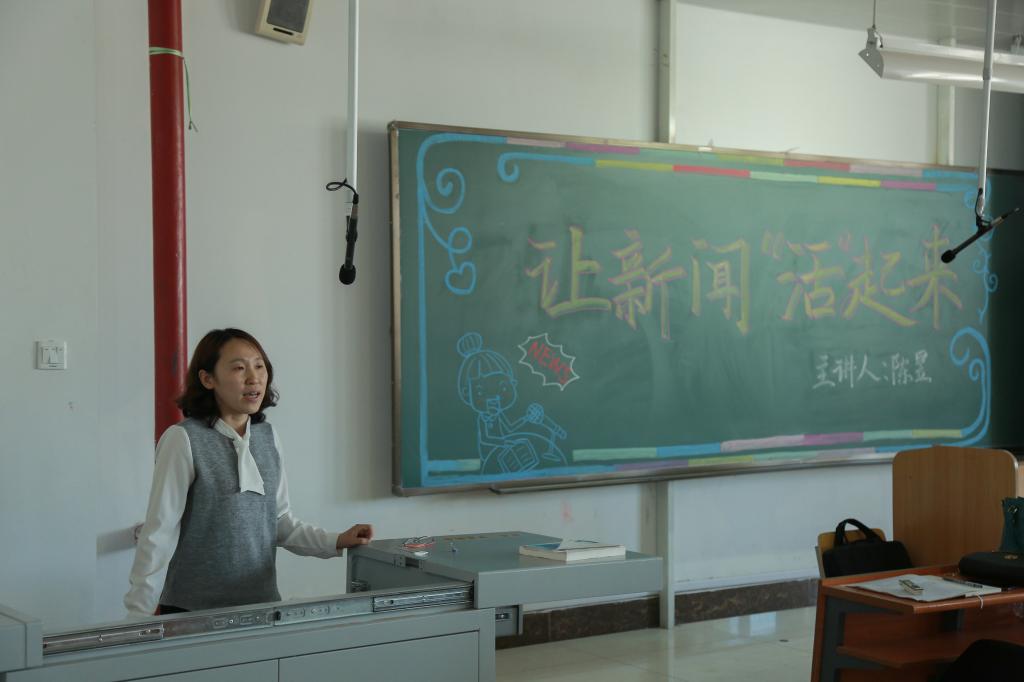 让新闻“活”起来
NEWS
主讲人:陈昱